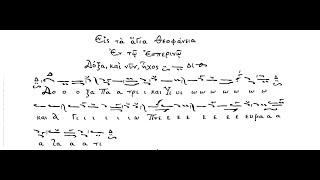 Εἰς τὰ ἅγια Θεοφάνεια
Ἐν τῷ Ἑσπερινῷ
Δόξα, καὶ νῦν, ἦχος Δι
Δο ο ο ξα Πα α τρι ι και Υι υι ω ω ω ω ω ω
και Α Γι ι ι ι ι ι ω Πνε ε ε ε ε ευμα α α
α τα α α τι